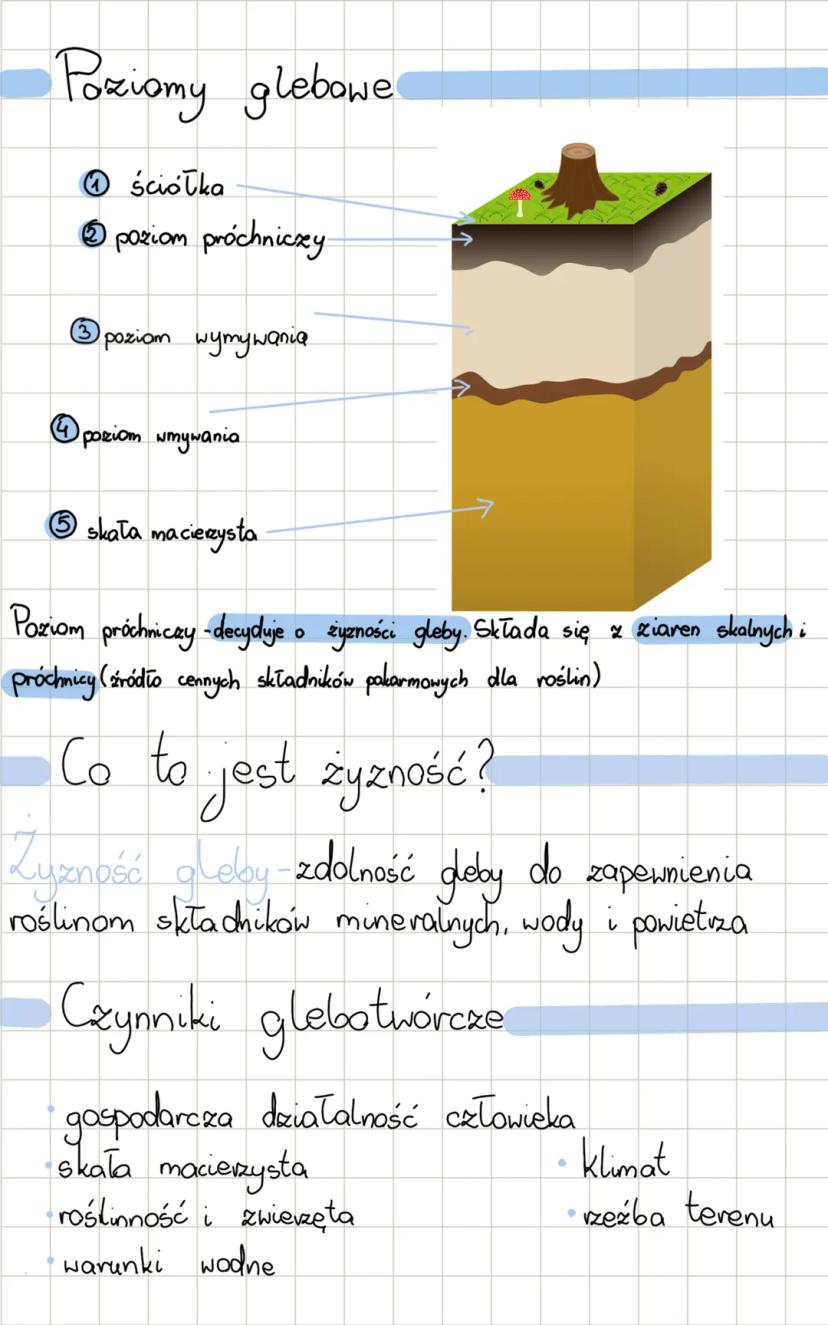 Poziomy glebowe
1 ściółka
2 poziom próchniczy
3 poziom wymywania
4 poziom wmywania
5 skała macierzysta
Poziom próchniczy - decyduje o żyzności gleby. Składa się z ziaren skalnych i
próchnicy (źródło cennych składników pokarmowych dla roślin)
Co to jest żyzność?
Żyzność gleby - zdolność gleby do zapewnienia
roślinom składników mineralnych, wody i powietrza
Czynniki glebotwórcze
• gospodarcza działalność człowieka
• skała macierzysta
• klimat
• roślinność i zwierzęta
• rzeźba terenu
• warunki wodne